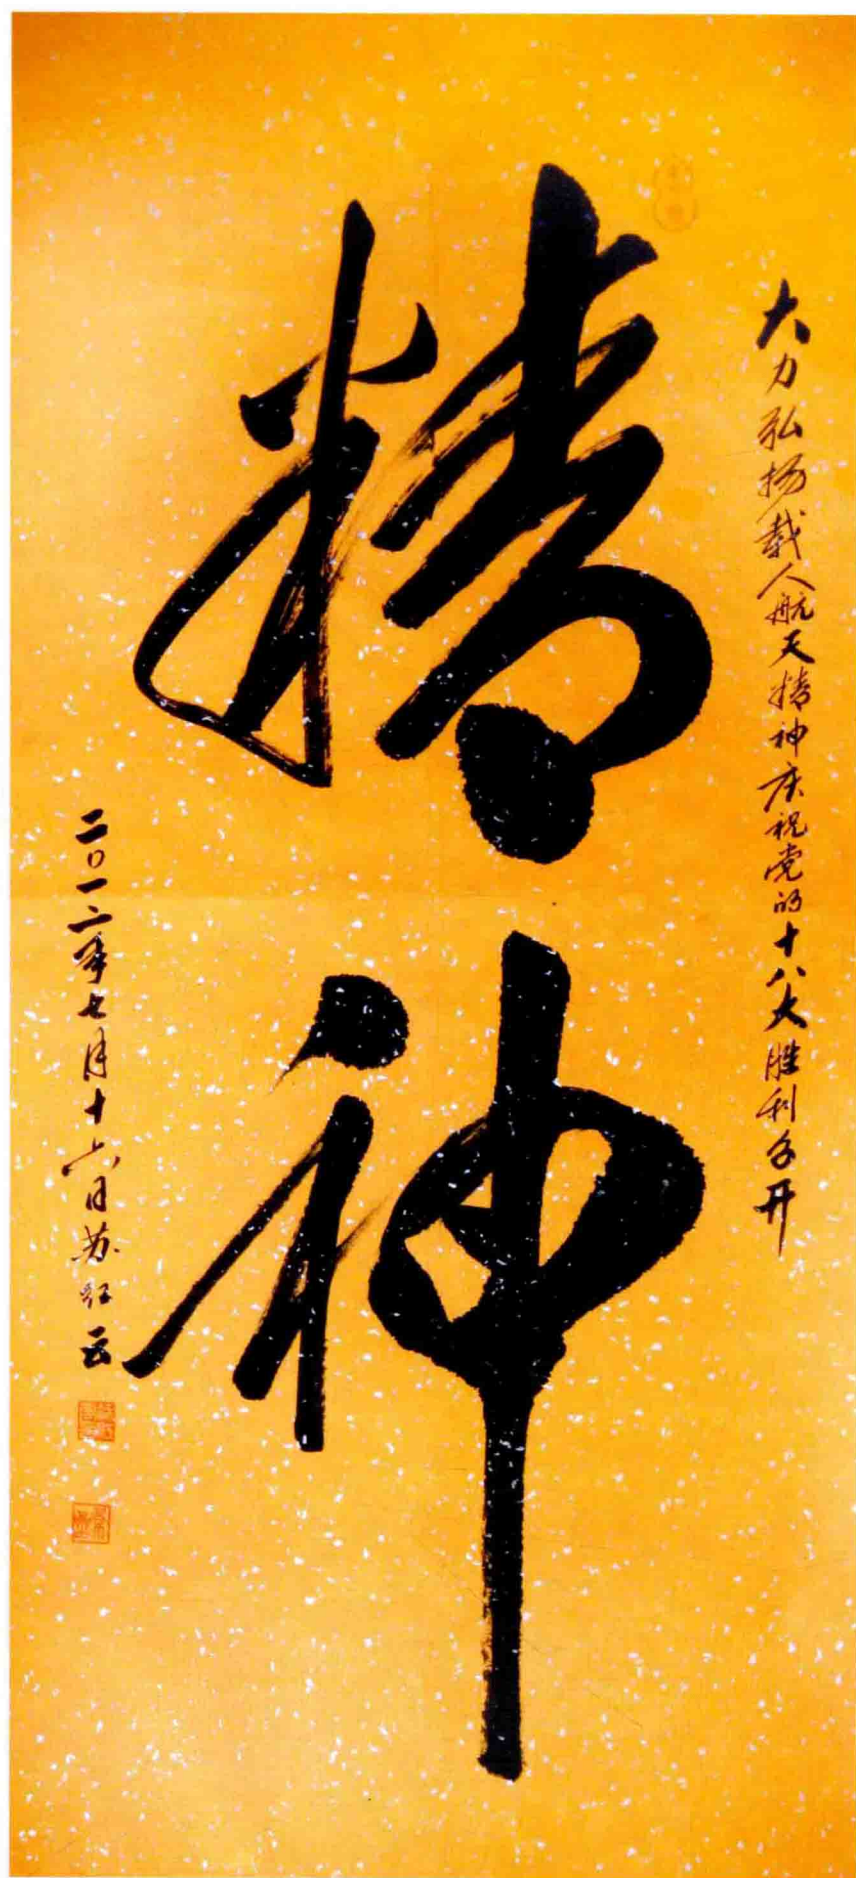 大力弘扬载人航天精神庆祝党的十八大胜利召开
精神
二〇一二年七月十六日苏红云